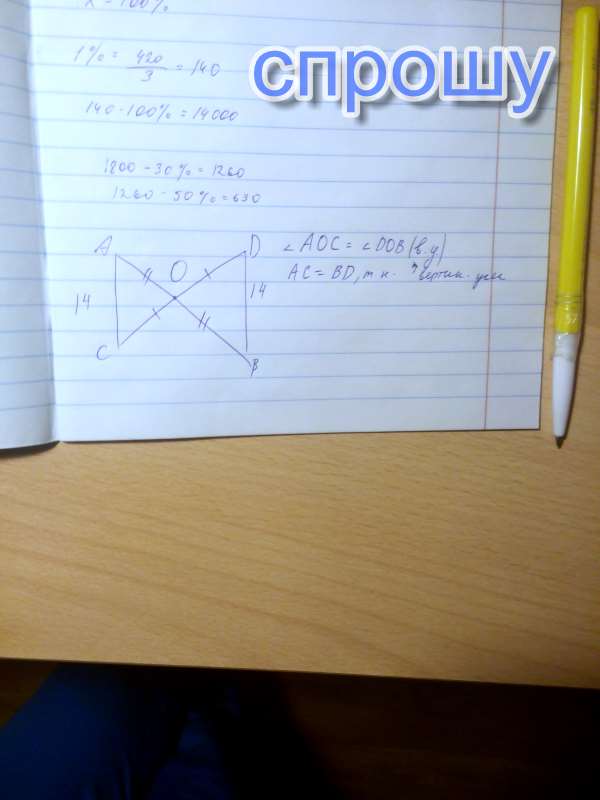 x - 100%
спрошу
1% = 420/3 = 140
140 · 100% = 14000
1800 - 30% = 1260
1260 - 50% = 630
A D
O
14 14
C B
∠AOC = ∠DOB (в.у)
AC = BD, т.к. вертик.